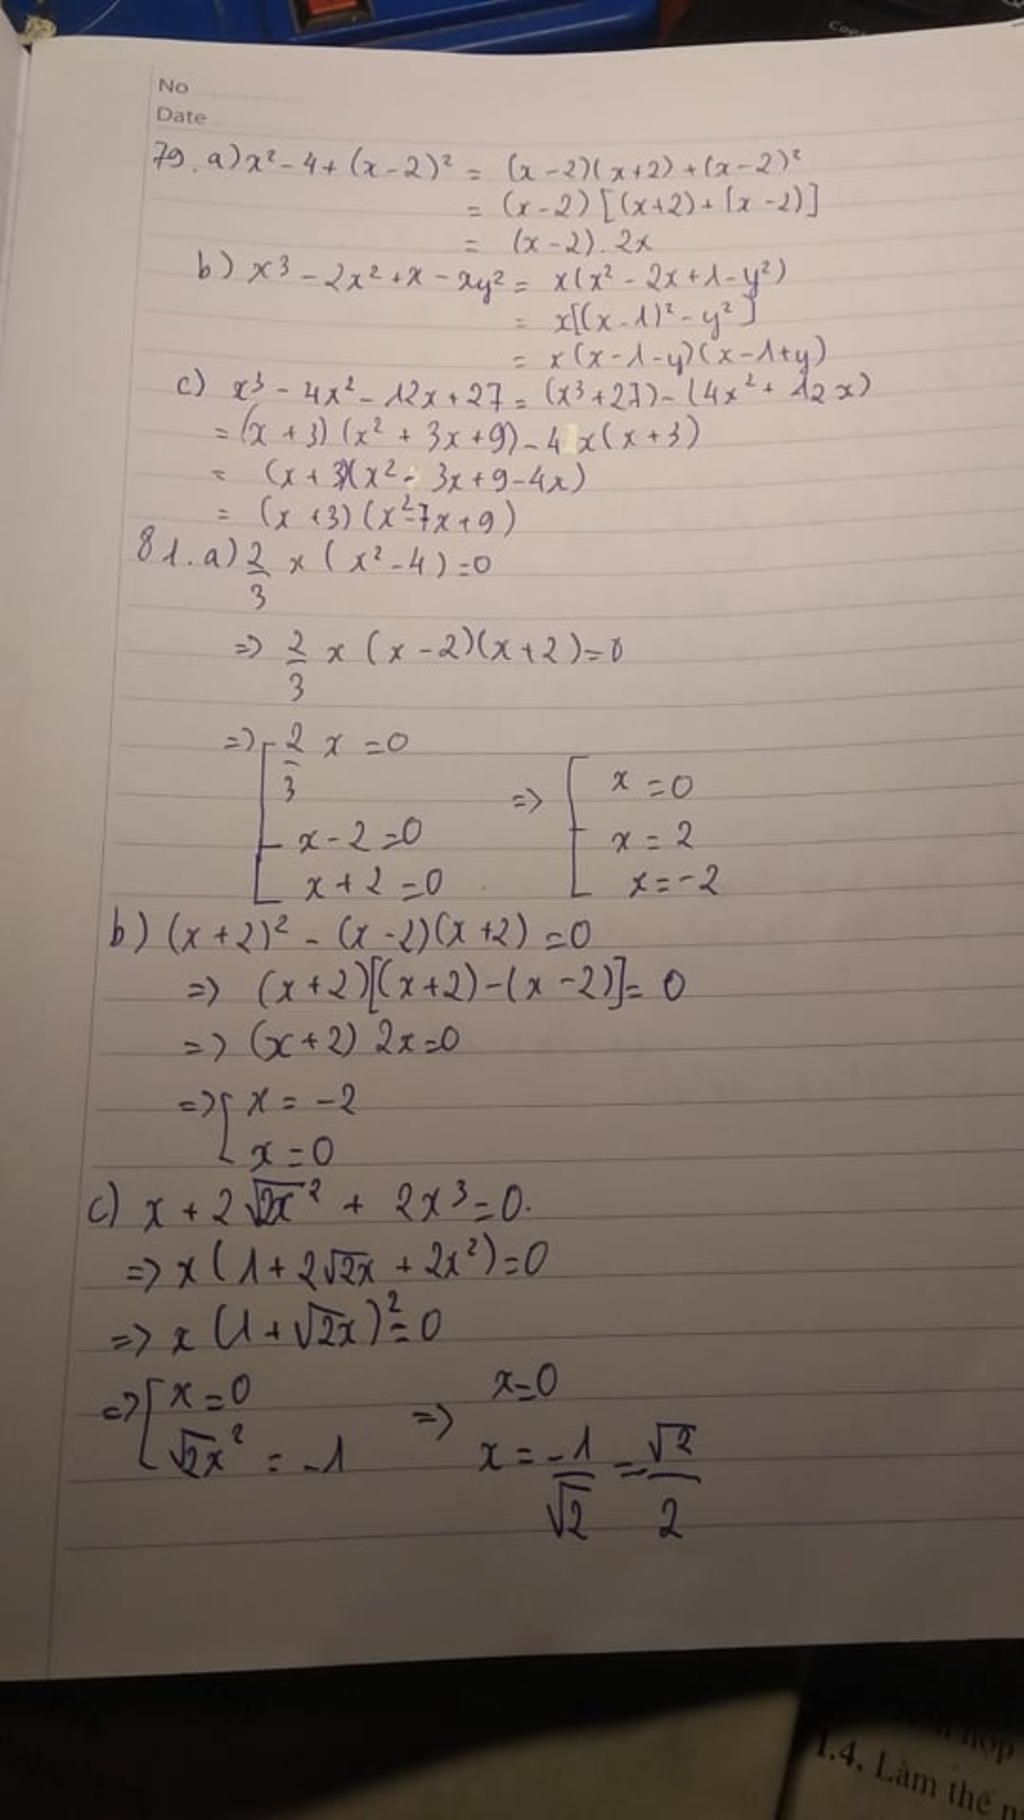 No
Date
79. a) x² - 4 + (x - 2)² = (x - 2)(x + 2) + (x - 2)²
= (x - 2)[(x + 2) + (x - 2)]
= (x - 2). 2x
b) x³ - 2x² + x - xy² = x(x² - 2x + 1 - y²)
= x[(x - 1)² - y²]
= x(x - 1 - y)(x - 1 + y)
c) x³ - 4x² - 12x + 27 = (x³ + 27) - (4x² + 12x)
= (x + 3)(x² + 3x + 9) - 4x(x + 3)
= (x + 3)(x² - 3x + 9 - 4x)
= (x + 3)(x² - 7x + 9)
81. a) 2/3 x (x² - 4) = 0
=> 2/3 x (x - 2)(x + 2) = 0
=> [ 2/3 x = 0 => [ x = 0
x - 2 = 0 x = 2
x + 2 = 0 x = -2
b) (x + 2)² - (x - 2)(x + 2) = 0
=> (x + 2)[(x + 2) - (x - 2)] = 0
=> (x + 2) 2x = 0
=> [ x = -2
x = 0
c) x + 2√2x² + 2x³ = 0.
=> x(1 + 2√2x + 2x²) = 0
=> x(1 + √2x)² = 0
=> [ x = 0 => x = 0
√2x² = -1 x = -1/√2 = √2/2
1.4. Làm thế